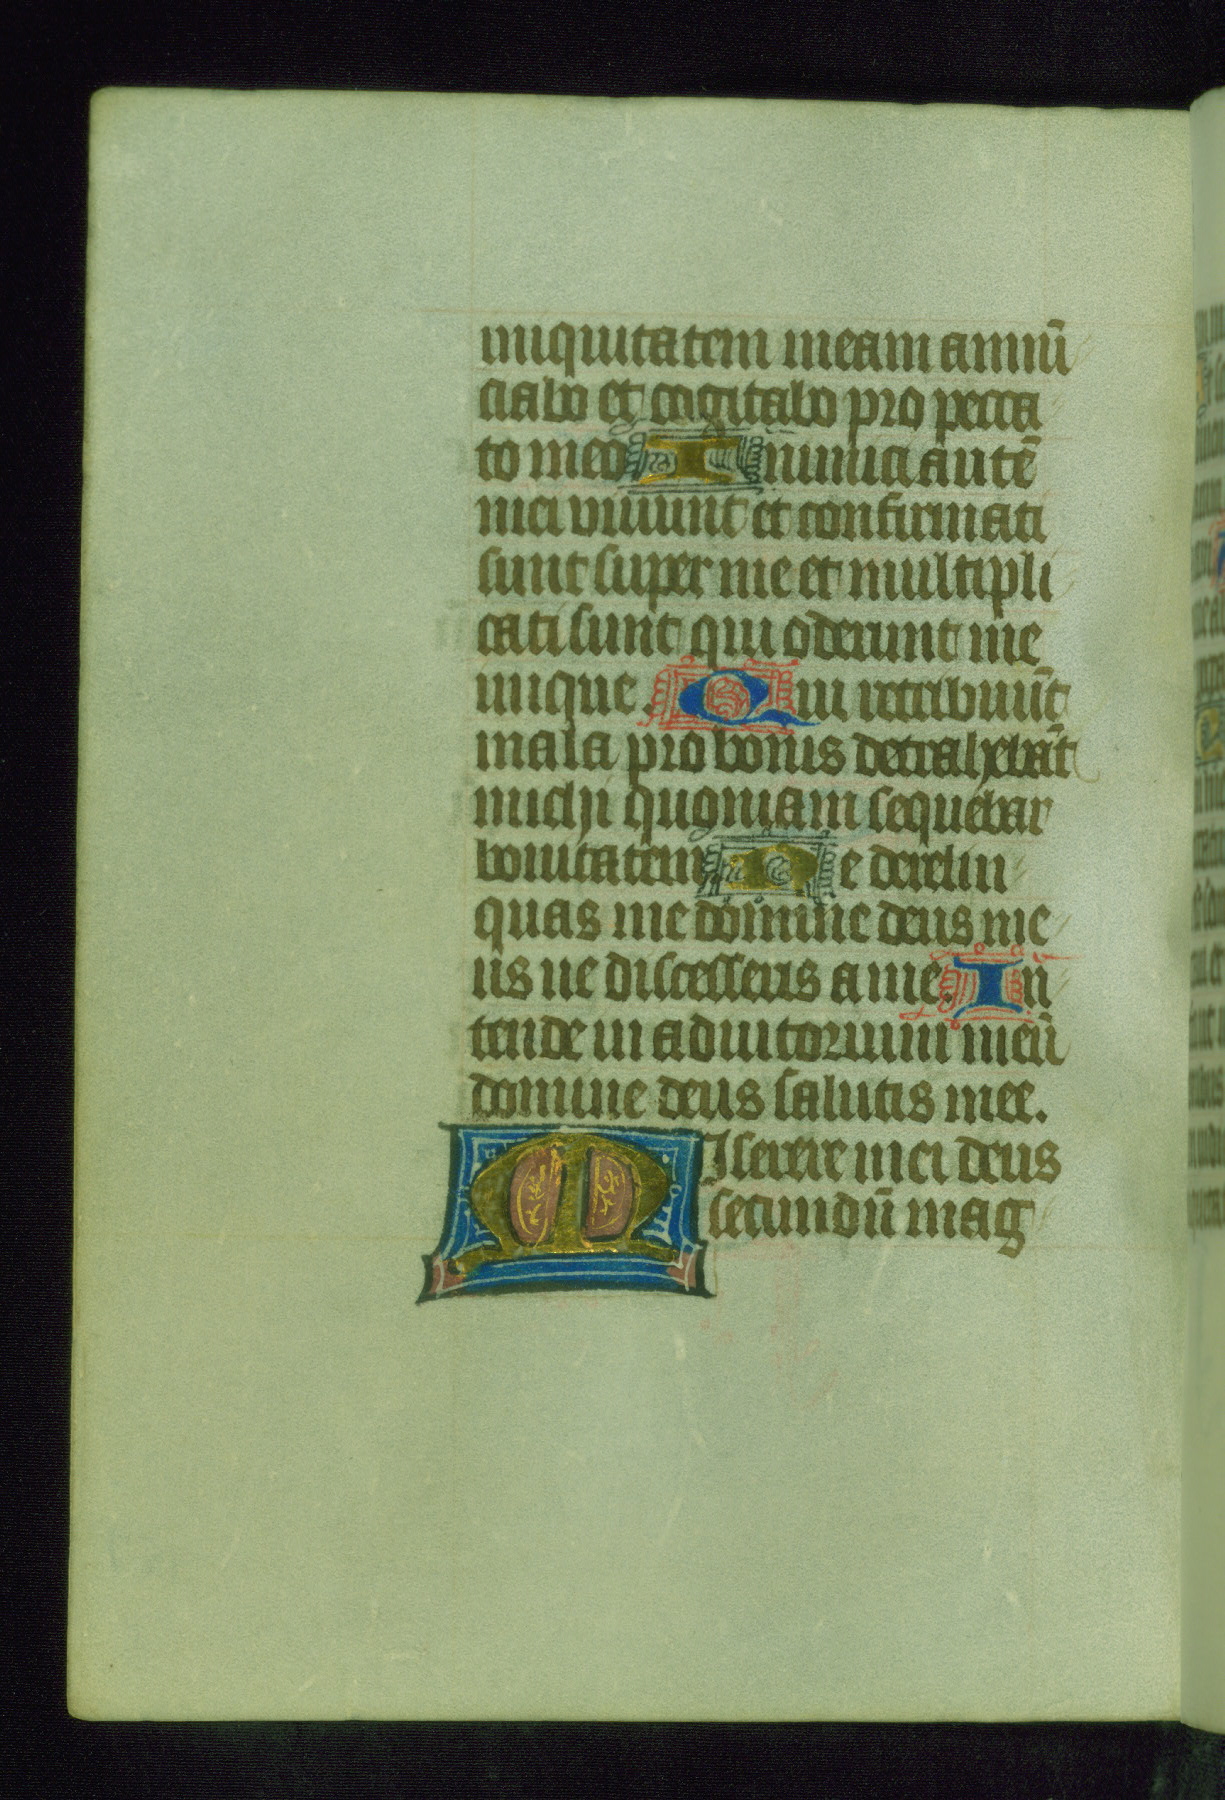 iniquitatem meam annũ
ciabo et cogitabo pro pecca
to meo Inimici autẽ
mei viuunt et confirmati
sunt super me et multipli
cati sunt qui oderunt me
inique. Qui retribuũt
mala pro bonis detrahebãt
michi quoniam sequebar
bonitatem Ne derelin
quas me domine deus me
us ne discesseris a me. In
tende in adiutorium meũ
domine deus salutis mee.
Miserere mei deus
secundũ mag